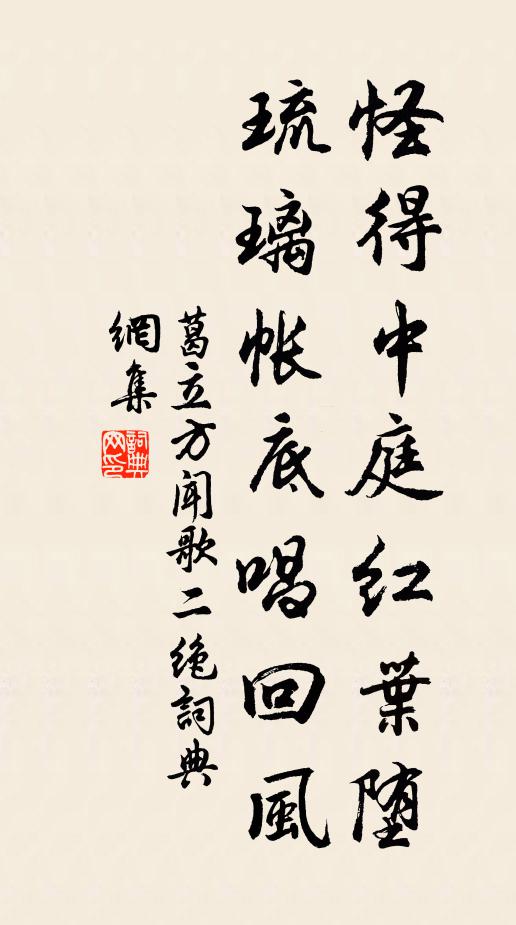 怪得中庭红葉堕
琉璃帐底唱回風
葛立方闻歌二绝詞典
網集
詞典網印